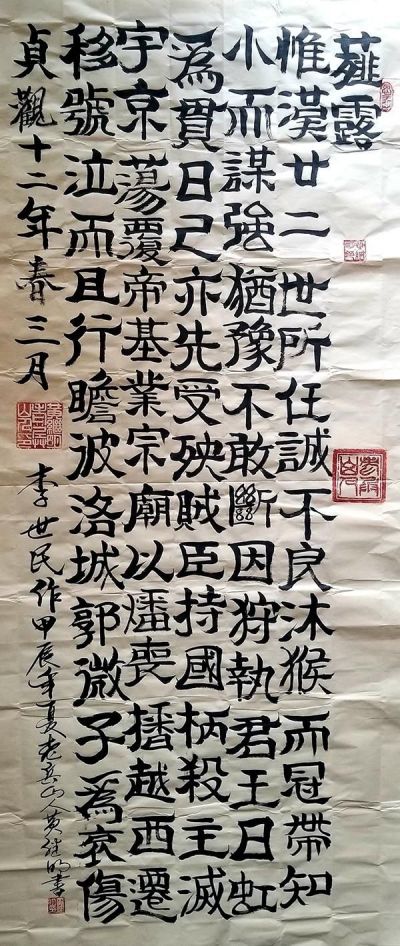 薤露
惟漢廿二世所任誠不良沐猴而冠帶知
小而謀強猶豫不敢斷因狩執君王日虹
爲貫日己亦先受殃賊臣持國柄殺主滅
宇京蕩覆帝基業宗廟以燔喪播越西遷
移號泣而且行瞻彼洛城郭微子爲哀傷
貞觀十二年春三月 李世民作甲辰年夏老岳山人黄继明書